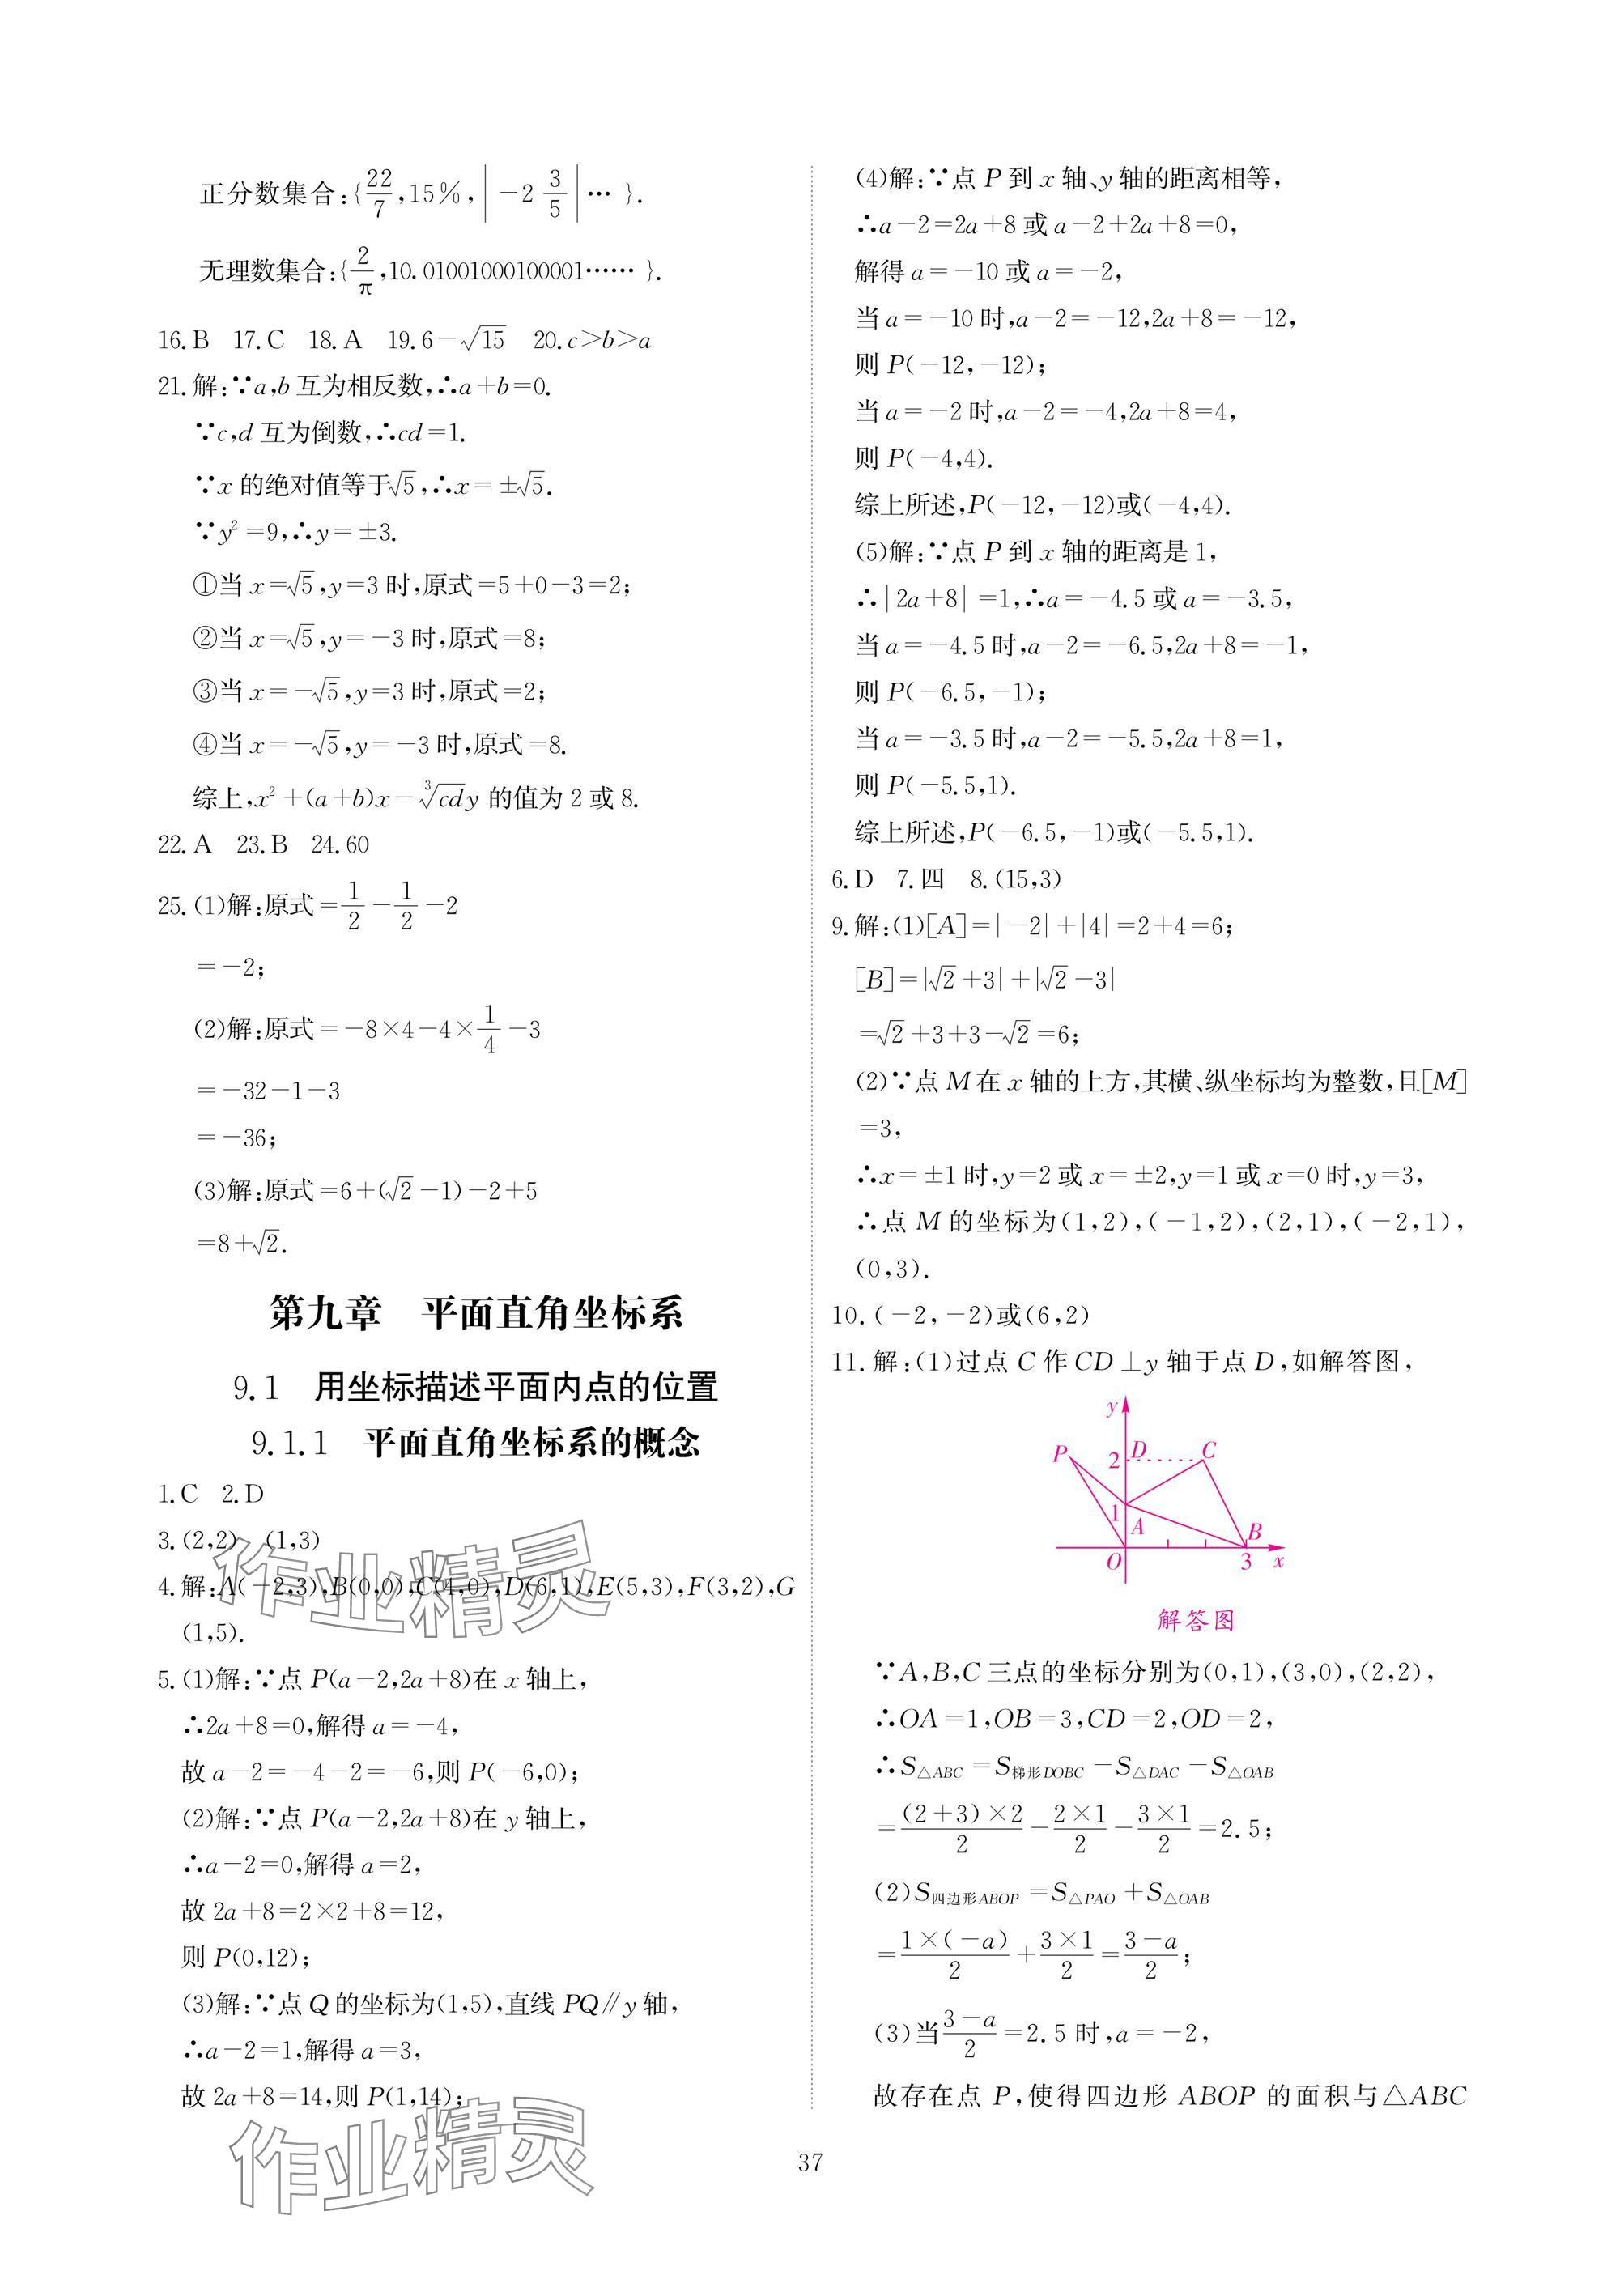 正分数集合:{22/7,15%,|-2 3/5|… }.
无理数集合:{2/π,10.01001000100001…… }.
16.B 17.C 18.A 19.6-√15 20.c>b>a
21.解:∵a,b互为相反数,∴a+b=0.
∵c,d互为倒数,∴cd=1.
∵x的绝对值等于√5,∴x=±√5.
∵y²=9,∴y=±3.
①当x=√5,y=3时,原式=5+0-3=2;
②当x=√5,y=-3时,原式=8;
③当x=-√5,y=3时,原式=2;
④当x=-√5,y=-3时,原式=8.
综上,x²+(a+b)x-∛cd y的值为2或8.
22.A 23.B 24.60
25.(1)解:原式=1/2-1/2-2
=-2;
(2)解:原式=-8×4-4×1/4-3
=-32-1-3
=-36;
(3)解:原式=6+(√2-1)-2+5
=8+√2.
第九章 平面直角坐标系
9.1 用坐标描述平面内点的位置
9.1.1 平面直角坐标系的概念
1.C 2.D
3.(2,2) (1,3)
4.解:A(-2,3),B(0,0),C(4,0),D(6,1),E(5,3),F(3,2),G
(1,5).
5.(1)解:∵点P(a-2,2a+8)在x轴上,
∴2a+8=0,解得a=-4,
故a-2=-4-2=-6,则P(-6,0);
(2)解:∵点P(a-2,2a+8)在y轴上,
∴a-2=0,解得a=2,
故2a+8=2×2+8=12,
则P(0,12);
(3)解:∵点Q的坐标为(1,5),直线PQ∥y轴,
∴a-2=1,解得a=3,
故2a+8=14,则P(1,14);
(4)解:∵点P到x轴、y轴的距离相等,
∴a-2=2a+8或a-2+2a+8=0,
解得a=-10或a=-2,
当a=-10时,a-2=-12,2a+8=-12,
则P(-12,-12);
当a=-2时,a-2=-4,2a+8=4,
则P(-4,4).
综上所述,P(-12,-12)或(-4,4).
(5)解:∵点P到x轴的距离是1,
∴|2a+8|=1,∴a=-4.5或a=-3.5,
当a=-4.5时,a-2=-6.5,2a+8=-1,
则P(-6.5,-1);
当a=-3.5时,a-2=-5.5,2a+8=1,
则P(-5.5,1).
综上所述,P(-6.5,-1)或(-5.5,1).
6.D 7.四 8.(15,3)
9.解:(1)[A]=|-2|+|4|=2+4=6;
[B]=|√2+3|+|√2-3|
=√2+3+3-√2=6;
(2)∵点M在x轴的上方,其横、纵坐标均为整数,且[M]
=3,
∴x=±1时,y=2或x=±2,y=1或x=0时,y=3,
∴点M的坐标为(1,2),(-1,2),(2,1),(-2,1),
(0,3).
10.(-2,-2)或(6,2)
11.解:(1)过点C作CD⊥y轴于点D,如解答图,
y
P 2 D C
1 A B
O 3 x
解答图
∵A,B,C三点的坐标分别为(0,1),(3,0),(2,2),
∴OA=1,OB=3,CD=2,OD=2,
∴S△ABC=S梯形DOBC-S△DAC-S△OAB
=(2+3)×2/2-2×1/2-3×1/2=2.5;
(2)S四边形ABOP=S△PAO+S△OAB
=1×(-a)/2+3×1/2=3-a/2;
(3)当3-a/2=2.5时,a=-2,
故存在点P,使得四边形ABOP的面积与△ABC
37
作业精灵
作业精灵